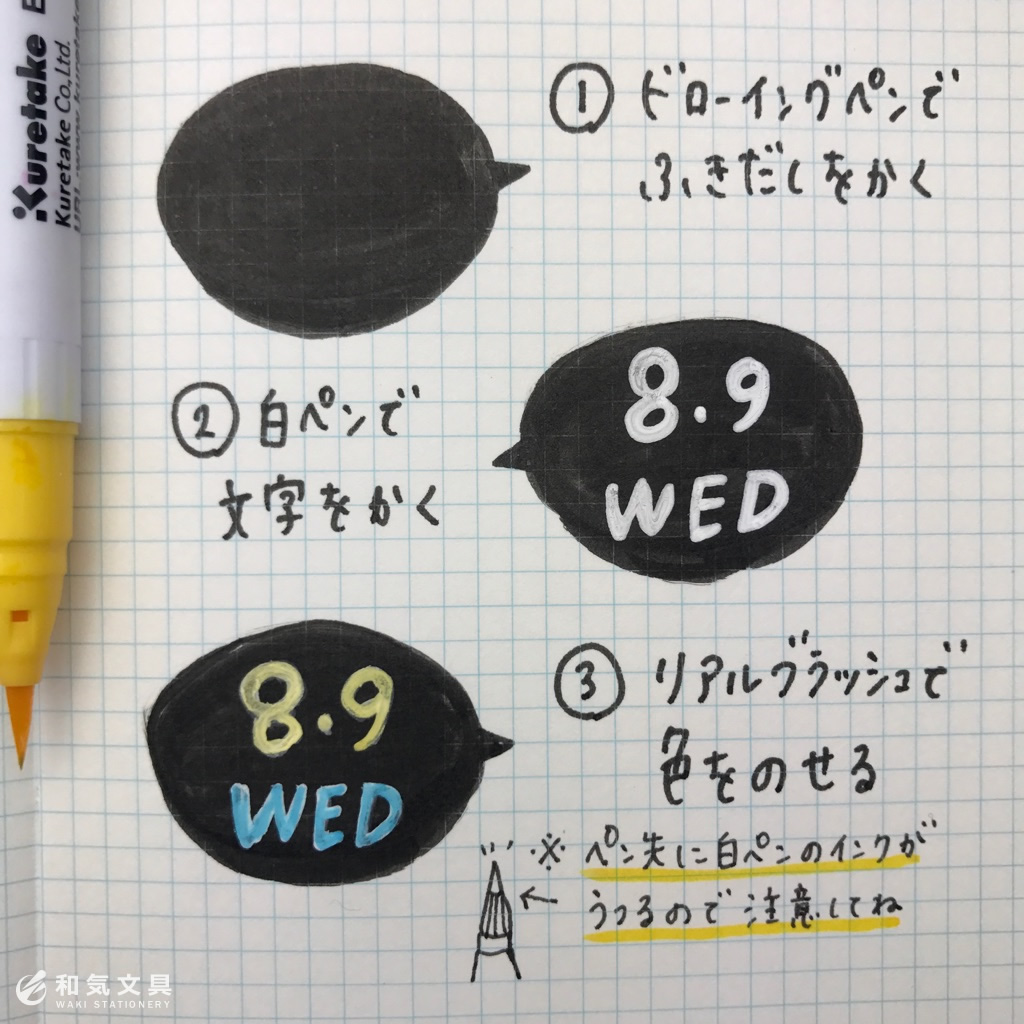 Kuretake
Kuretake Co.,Ltd.
① ドローイングペンで
ふきだしをかく
8.9
WED
② 白ペンで
文字をかく
8.9
WED
③ リアルブラッシュで
色をのせる
※ ペン先に白ペンのインクが
うつるので注意してね
和気文具
WAKI STATIONERY